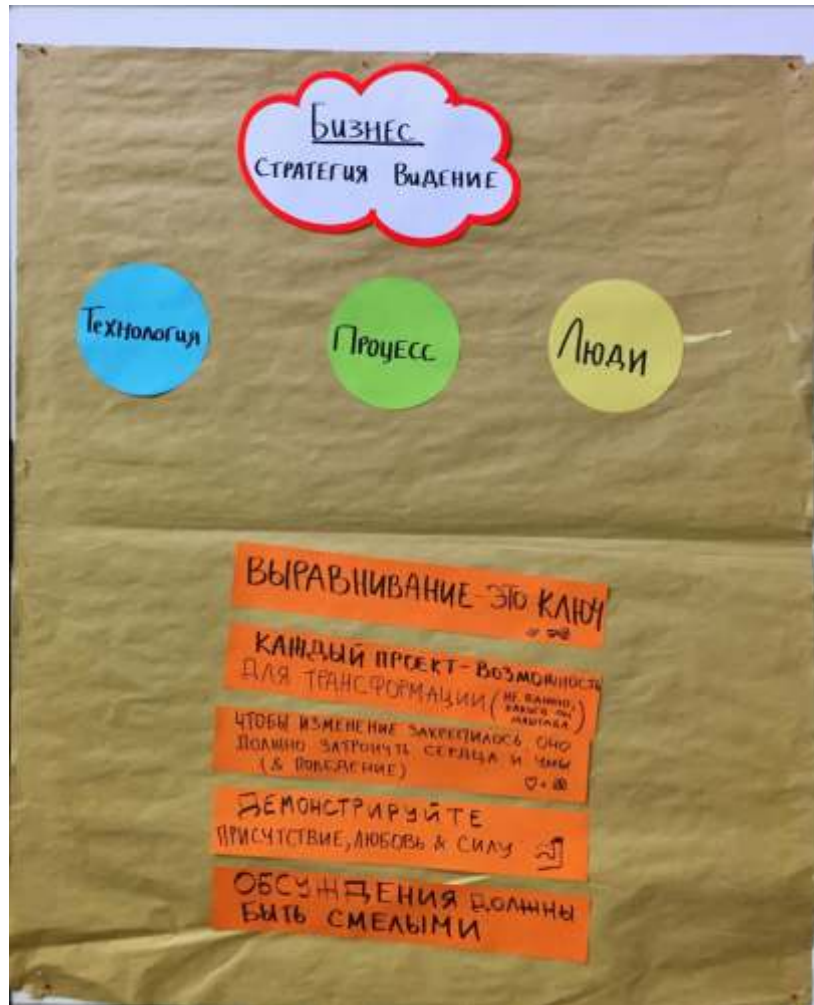 Бизнес
Стратегия Видение
Технология
Процесс
Люди
ВЫРАВНИВАНИЕ - ЭТО КЛЮЧ
КАЖДЫЙ ПРОЕКТ - ВОЗМОЖНОСТЬ
ДЛЯ ТРАНСФОРМАЦИИ (НЕ ВАЖНО,
КАКОГО ОН
МАШТАБА)
ЧТОБЫ ИЗМЕНЕНИЕ ЗАКРЕПИЛОСЬ ОНО
ДОЛЖНО ЗАТРОНУТЬ СЕРДЦА И УМЫ
(& ПОВЕДЕНИЕ)
ДЕМОНСТРИРУЙТЕ
ПРИСУТСТВИЕ, ЛЮБОВЬ & СИЛУ
ОБСУЖДЕНИЯ ДОЛЖНЫ
БЫТЬ СМЕЛЫМИ